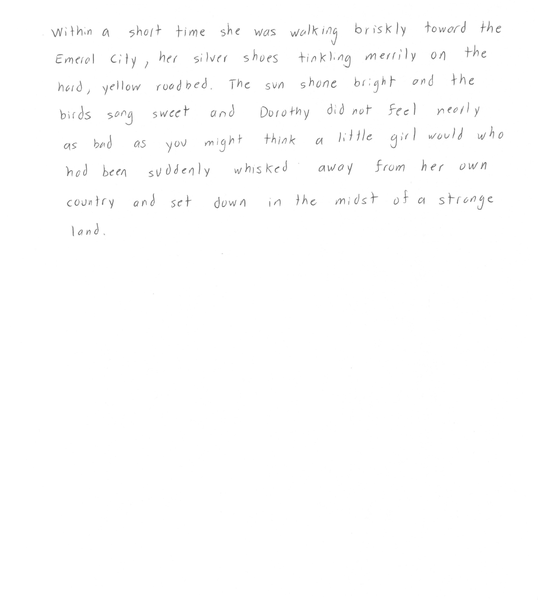 Within a short time she was walking briskly toward the
Emerol City, her silver shoes tinkling merrily on the
hard, yellow roadbed. The sun shone bright and the
birds song sweet and Dorothy did not feel nearly
as bad as you might think a little girl would who
had been suddenly whisked away from her own
country and set down in the midst of a strange
land.